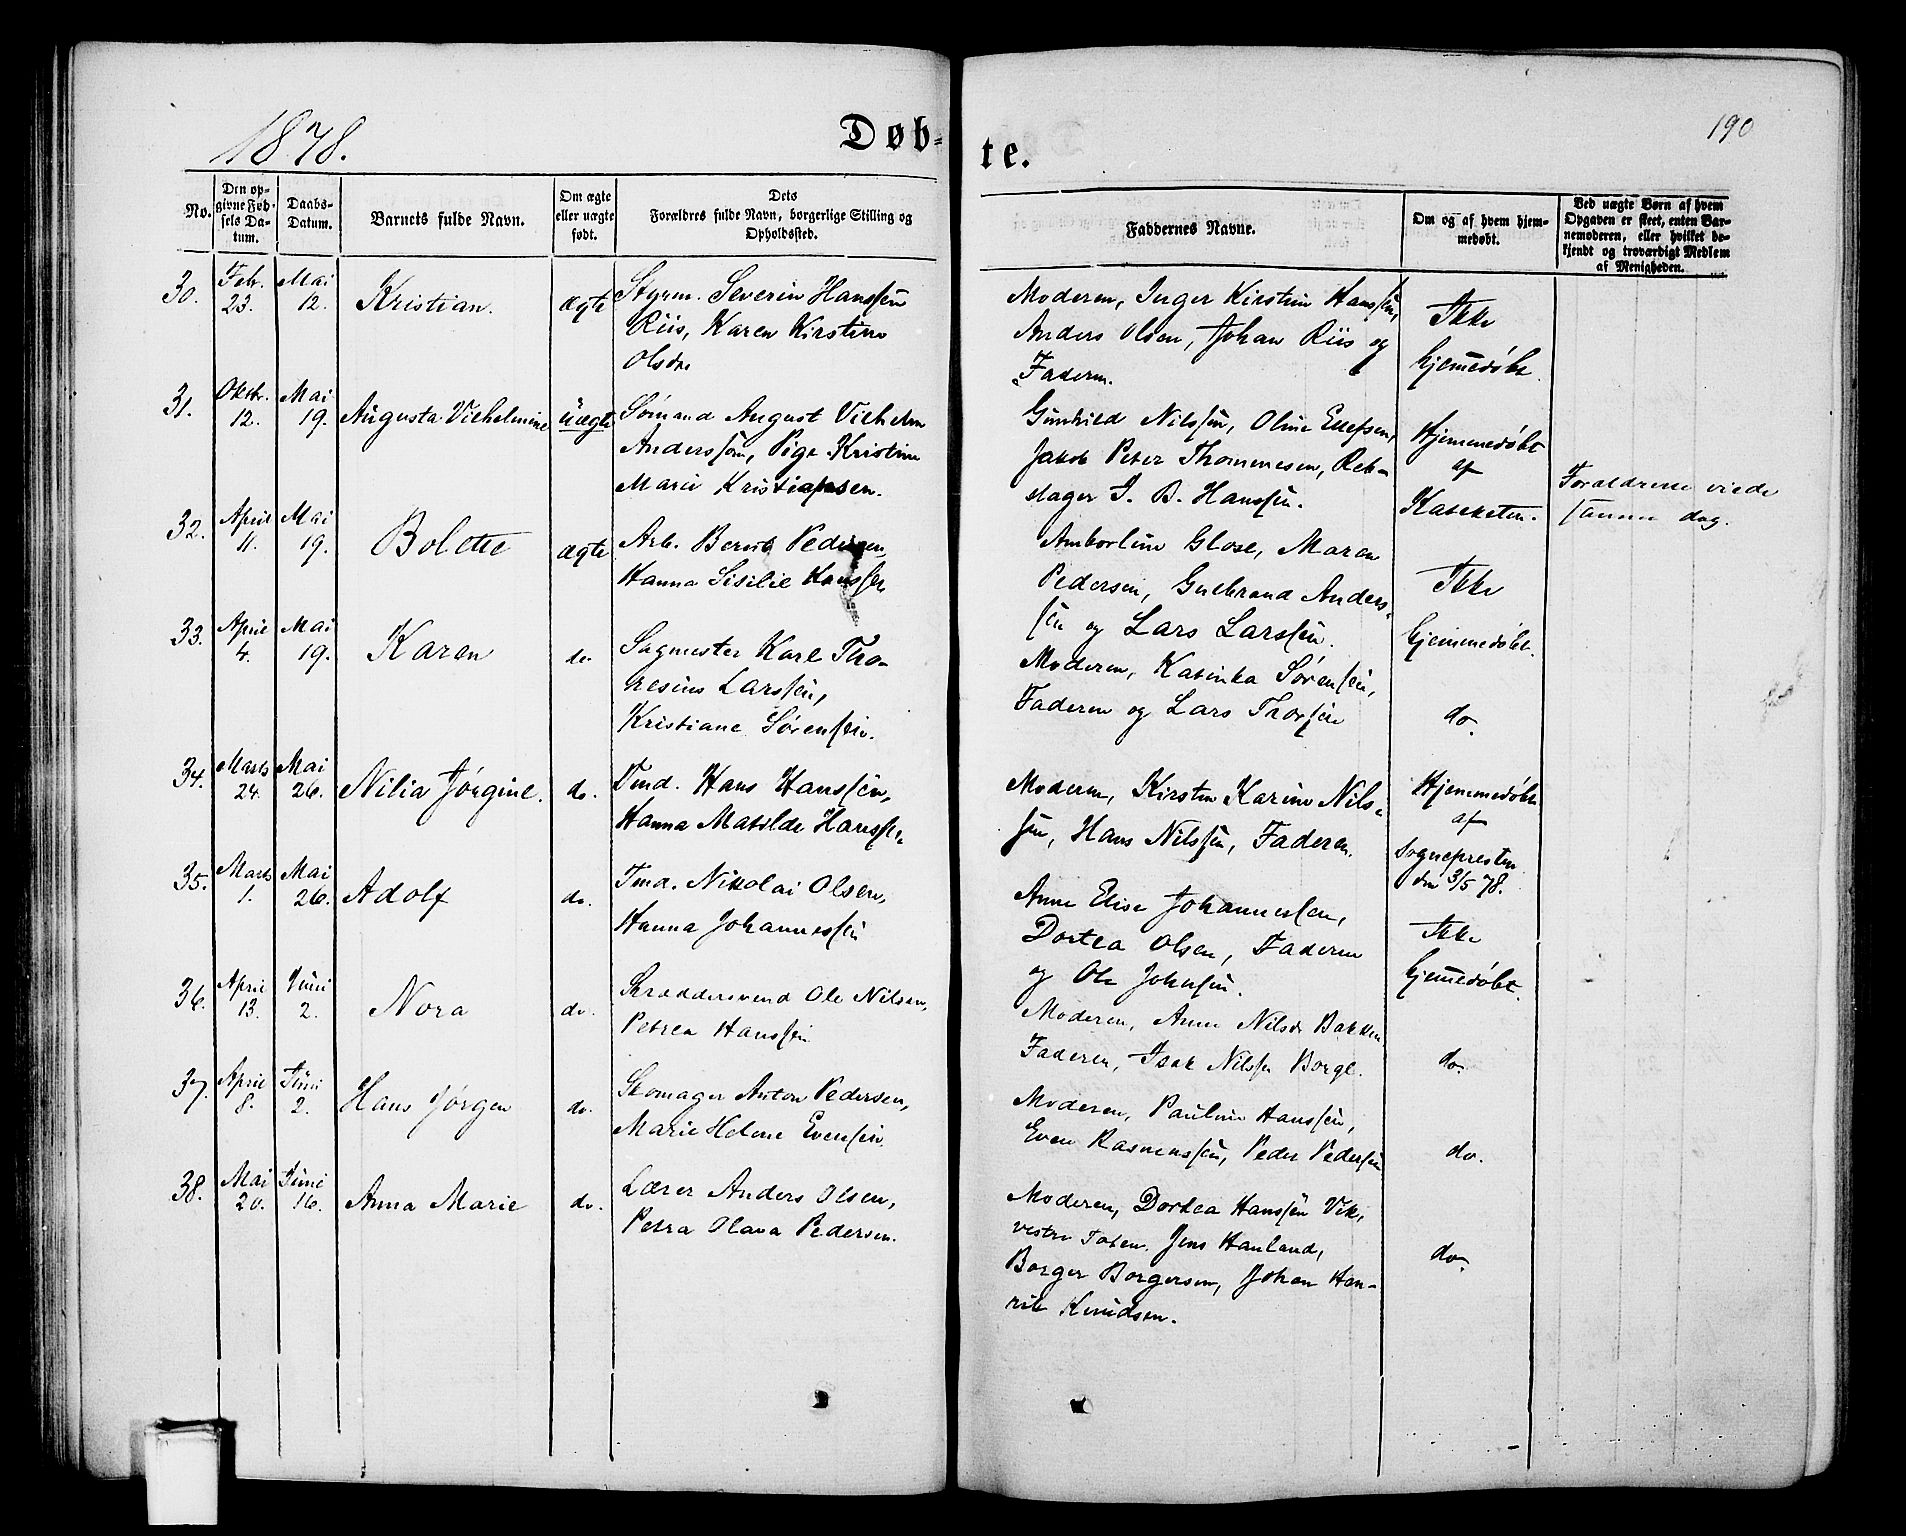 1878.
Døb-
te.
190
No.
Den op-
givne Fød-
sels Da-
tum.
Daabs-
Datum.
Barnets fulde Navn.
Om ægte
eller uægte
født.
Dets
Forældres fulde Navn, borgerlige Stilling og
Opholdssted.
Faddernes Navne.
Om og af hvem hjem-
medøbt.
Ved uægte Børn af hvem
Opgaven er skeet, enten Bar-
nemoderen, eller hvilket be-
kjendt og troværdigt Medlem
af Menigheden.
30.
Febr.
23.
Mai
12.
Kristian.
ægte
Styrm. Severin Hanssen
Riis, Karen Kirstine
Olsdr.
Moderen, Inger Kirstine Hanssen,
Anders Olsen, Johan Riis og
Faderen.
Ikke
hjemmedøbt.
31.
Oktbr.
12.
Mai
19.
Augusta Vilhelmine
uægte
Sømand August Vilhelm
Anderssøn, Pige Kristine
Marie Kristiansen.
Gunhild Nilssen, Oline Ellefsen,
Jakob Peter Thommesen, Reb-
slager I. B. Hanssen.
Hjemmedøbt
af
Kateketen.
Forældrene viede
samme dag.
32.
April
11.
Mai
19.
Bolette
ægte
Arb. Bernt Pedersen,
Hanna Sisilie Hanssen
Amborline Glose, Maren
Pedersen, Gulbrand Anders-
sen og Lars Larssen.
Ikke
hjemmedøbt.
33.
April
4.
Mai
19.
Karen
do.
Sagmester Karl Tho-
resius Larssen,
Kristiane Sørenssen.
Moderen, Katinka Sørensen,
Faderen og Lars Thorsen
do.
34.
Marts
24.
Mai
26.
Nilia Jørgine.
do.
Tmd. Hans Hanssen,
Hanna Matilde Hanssen
Moderen, Kirsten Karine Nils-
sen, Hans Nilssen, Faderen.
Hjemmedøbt
af
Sognepresten
den 3/5 78.
35.
Marts
1.
Mai
26.
Adolf
do.
Tmd. Nikolai Olsen,
Hanna Johannessen
Anne Elise Johannessen,
Dortea Olsen, Faderen
og Ole Johnsen.
Ikke
hjemmedøbt.
36.
April
13.
Juni
2.
Nora
do.
Skræddersvend Ole Nilsen,
Petrea Hanssen
Moderen, Anne Nilsdr Bakken
Faderen, Isak Nilssen Borge.
do.
37.
April
8.
Juni
2.
Hans Jørgen
do.
Skomager Anton Pedersen,
Marie Helene Evensen.
Moderen, Pauline Hanssen,
Even Rasmussen, Peder Pedersen
do.
38.
Mai
20.
Juni
16.
Anna Marie
do.
Lærer Anders Olsen,
Petra Olava Pedersen.
Moderen, Dortea Hanssen Vik,
vestre Toten. Jens Hauland,
Borger Borgersen, Johan Hen-
rik Knudsen.
do.